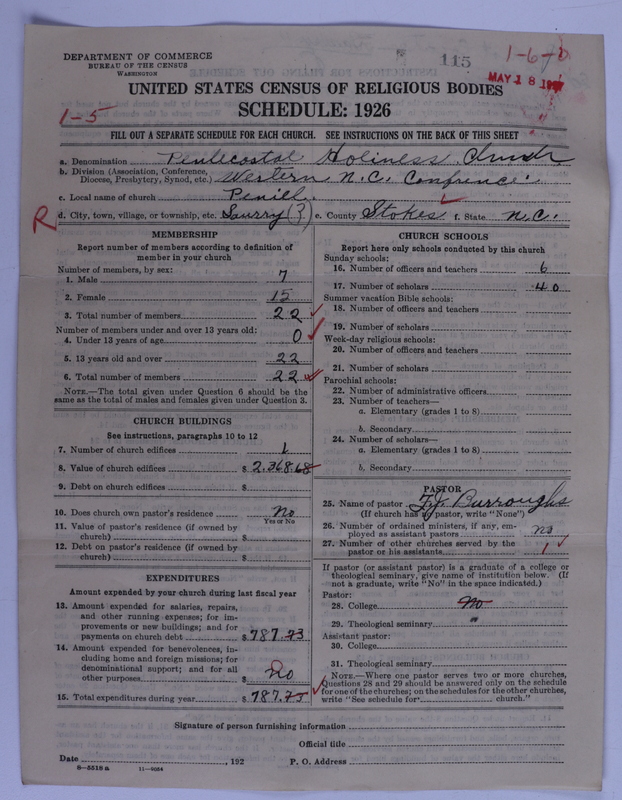 DEPARTMENT OF COMMERCE
BUREAU OF THE CENSUS
WASHINGTON
115
1-6-0
MAY 18
UNITED STATES CENSUS OF RELIGIOUS BODIES
SCHEDULE: 1926
1-5
FILL OUT A SEPARATE SCHEDULE FOR EACH CHURCH. SEE INSTRUCTIONS ON THE BACK OF THIS SHEET
a. Denomination Pentecostal Holiness Church
b. Division (Association, Conference, Diocese, Presbytery, Synod, etc.) Western N.C. Confrence
c. Local name of church
R d. City, town, village, or township, etc. Saurry (?) e. County Stokes f. State N.C.
MEMBERSHIP
Report number of members according to definition of
member in your church
Number of members, by sex:
1. Male 7
2. Female 15
3. Total number of members 22
Number of members under and over 13 years old:
4. Under 13 years of age 0
5. 13 years old and over 22
6. Total number of members 22
NOTE.—The total given under Question 6 should be the
same as the total of males and females given under Question 3.
CHURCH BUILDINGS
See instructions, paragraphs 10 to 12
7. Number of church edifices 1
8. Value of church edifices $ 2,368.68
9. Debt on church edifices $
10. Does church own pastor's residence? No
Yes or No
11. Value of pastor's residence (if owned by
church) $
12. Debt on pastor's residence (if owned by
church) $
EXPENDITURES
Amount expended by your church during last fiscal year
13. Amount expended for salaries, repairs,
and other running expenses; for im-
provements or new buildings; and for
payments on church debt $ 787.73
14. Amount expended for benevolences, in-
cluding home and foreign missions; for
denominational support; and for all
other purposes $ no
15. Total expenditures during year $ 787.75
CHURCH SCHOOLS
Report here only schools conducted by this church
Sunday schools:
16. Number of officers and teachers 6
17. Number of scholars 40
Summer vacation Bible schools:
18. Number of officers and teachers
19. Number of scholars
Week-day religious schools:
20. Number of officers and teachers
21. Number of scholars
Parochial schools:
22. Number of administrative officers
23. Number of teachers—
a. Elementary (grades 1 to 8)
b. Secondary
24. Number of scholars—
a. Elementary (grades 1 to 8)
b. Secondary
PASTOR
25. Name of pastor Burroughs
(If church has no pastor, write "None")
26. Number of ordained ministers, if any, em-
ployed as assistant pastors no
27. Number of other churches served by the
pastor or his assistants 1
If pastor (or assistant pastor) is a graduate of a college or
theological seminary, give name of institution below. (If
not a graduate, write "No" in the space indicated.)
Pastor:
28. College No
29. Theological seminary "
Assistant pastor:
30. College
31. Theological seminary
NOTE.—Where one pastor serves two or more churches,
Questions 28 and 29 should be answered only on the schedule
for one of the churches; on the schedules for the other churches,
write "See schedule for church."
Signature of person furnishing information
Official title
Date , 192 P. O. Address
8—5518 a 11—9264